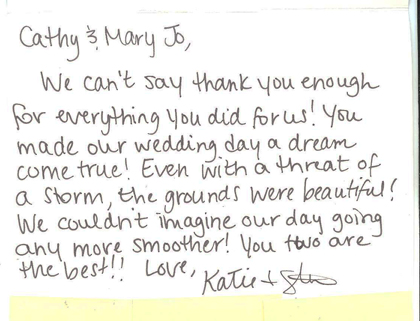 Cathy & Mary Jo,
We can't say thank you enough
for everything you did for us! You
made our wedding day a dream
come true! Even with a threat of
a storm, the grounds were beautiful!
We couldn't imagine our day going
any more smoother! You two are
the best!! Love,
Katie +